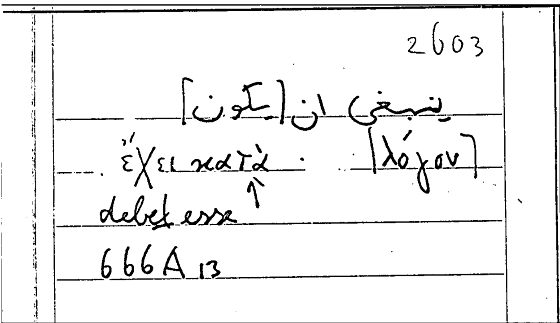 2603
ينبغى ان [يكون]
ἔχει κατὰ [λόγον]
↑
debet esse
666A 13